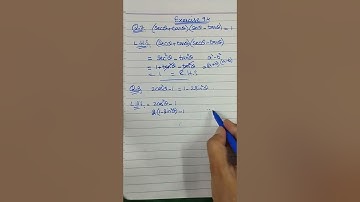 Exercise 9.
Q.2. (secθ + tanθ)(secθ - tanθ) = 1
L.H.S. (secθ + tanθ)(secθ - tanθ)
= sec²θ - tan²θ a² - b²
= 1 + tan²θ - tan²θ
= 1 = R.H.S
Q.3. 2cos²θ - 1 = 1 - 2sin²θ
L.H.S. = 2cos²θ - 1
2(1 - sin²θ) - 1